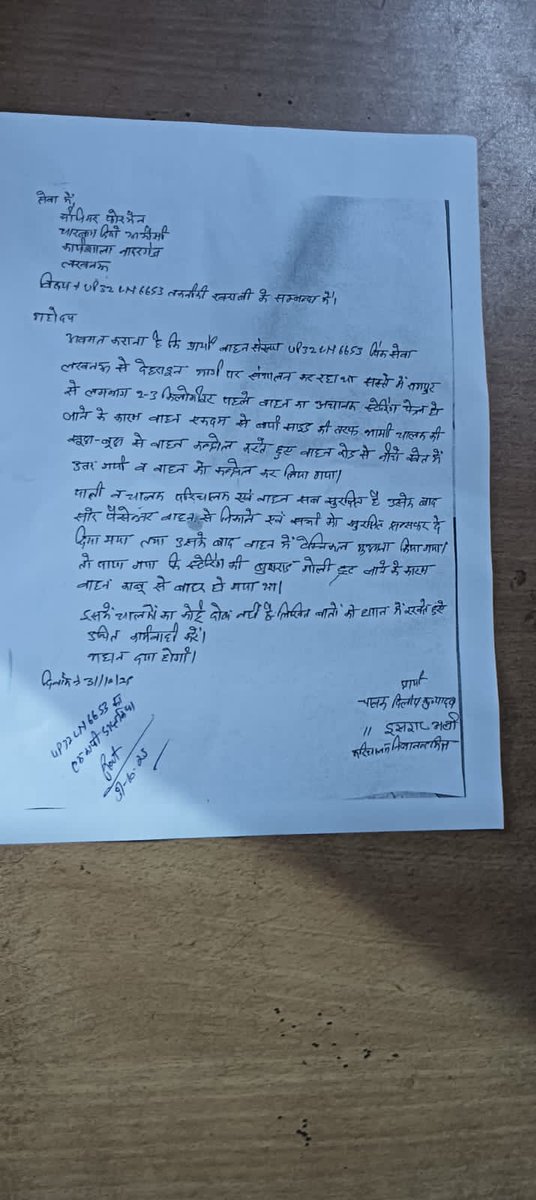 सेवा में,
सीनियर फोरमैन
चारबाग डिपो
कार्यशाला
लखनऊ
विषय:- UP32LN6653 तकनीकी खराबी के सम्बन्ध में।
महोदय
अवगत कराना है कि वाहन संख्या UP32LN6653 सेवा
लखनऊ से देहरादून मार्ग पर संचालन कर रहा था रास्ते में
से लगभग 2-3 किलोमीटर पहले वाहन का अचानक स्टेरिंग फेल हो
जाने के कारण वाहन एकदम से साइड की तरफ चालक की
सूझ-बूझ से वाहन कन्ट्रोल करते हुए वाहन रोड से नीचे खेत में
उतर गयी व वाहन को कन्ट्रोल कर लिया गया।
चालक परिचालक एवं वाहन सब सुरक्षित है उसके बाद
पैसेन्जर वाहन से निकाले एवं सभी को सुरक्षित ट्रान्सफर दे
दिया गया तथा उसके बाद वाहन में टेक्निकल किया गया।
तो पाया गया कि स्टेरिंग की गोली टूट जाने के कारण
वाहन काबू से बाहर हो गया था।
इसमें चालकों का कोई दोष नहीं है बातों को ध्यान में रखते हुए
उचित कार्यवाही करें।
महान दया होगी।
दिनांक:- 31/10/25
प्रार्थी
चालक
"
परिचालक
UP32LN6653
31-10-25